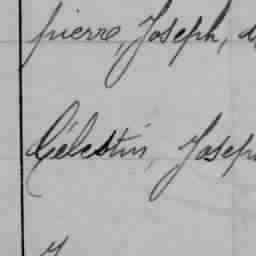 pierre, Joseph,
Célestin, Joseph